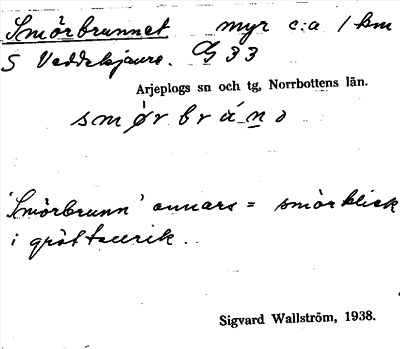 Smörbrunnet myr c:a 1 km
S Veddekjaure. G 33
Arjeplogs sn och tg, Norrbottens län.
smørbrúno
'Smörbrunn' annars = smörklick
i gröttallrik..
Sigvard Wallström, 1938.